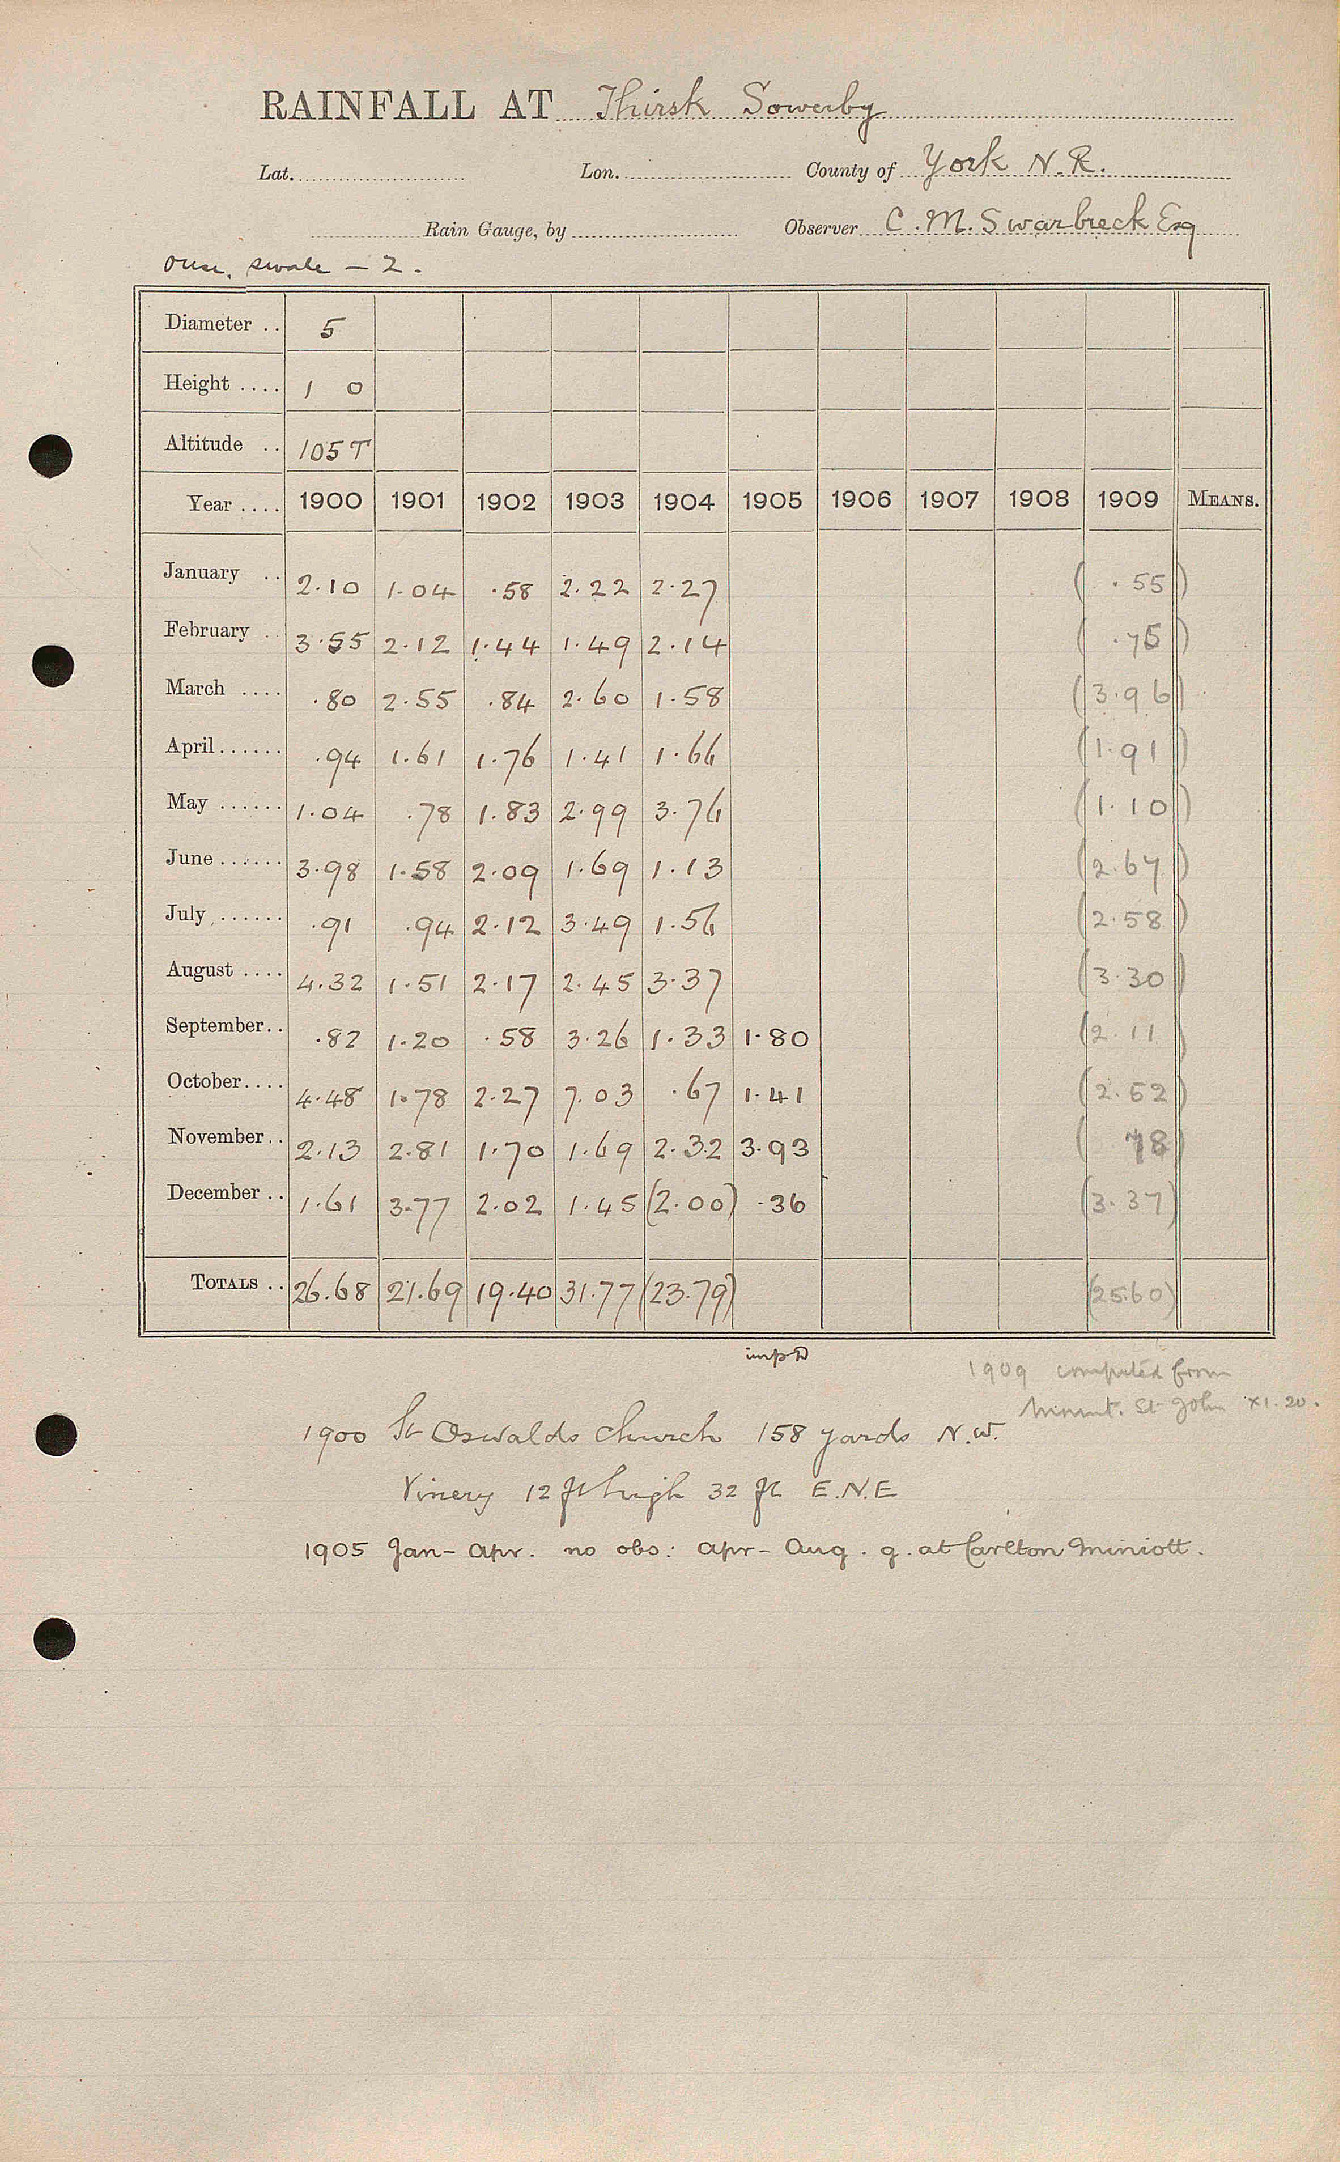 RAINFALL AT Thirsk Sowerby
Lat. Lon. County of York N.R.
Rain Gauge, by Observer C. M. Swarbreck Esq
Ouse, Swale – 2.
Diameter .. 5
Height .... 1 0
Altitude .. 105 T
Year .... 1900 1901 1902 1903 1904 1905 1906 1907 1908 1909 MEANS.
January .. 2.10 1.04 .58 2.22 2.27 (.55)
February .. 3.55 2.12 1.44 1.49 2.14 (.75)
March .... .80 2.55 .84 2.60 1.58 (3.96)
April ...... .94 1.61 1.76 1.41 1.66 (1.91)
May ...... 1.04 .78 1.83 2.99 3.76 (1.10)
June ...... 3.98 1.58 2.09 1.69 1.13 (2.67)
July ...... .91 .94 2.12 3.49 1.56 (2.58)
August .... 4.32 1.51 2.17 2.45 3.37 (3.30)
September .. .82 1.20 .58 3.26 1.33 1.80 (2.11)
October .... 4.48 1.78 2.27 7.03 .67 1.41 (2.52)
November .. 2.13 2.81 1.70 1.69 2.32 3.93 ( 78)
December .. 1.61 3.77 2.02 1.45 (2.00) .36 (3.37)
TOTALS .. 26.68 21.69 19.40 31.77 (23.79) (25.60)
1909 computed from
St John × 1.20.
1900 St Oswalds Church 158 yards N.W.
Vinery 12 ft high 32 ft E.N.E
1905 Jan – Apr. no obs: Apr – Aug. g. at Carlton Miniott.